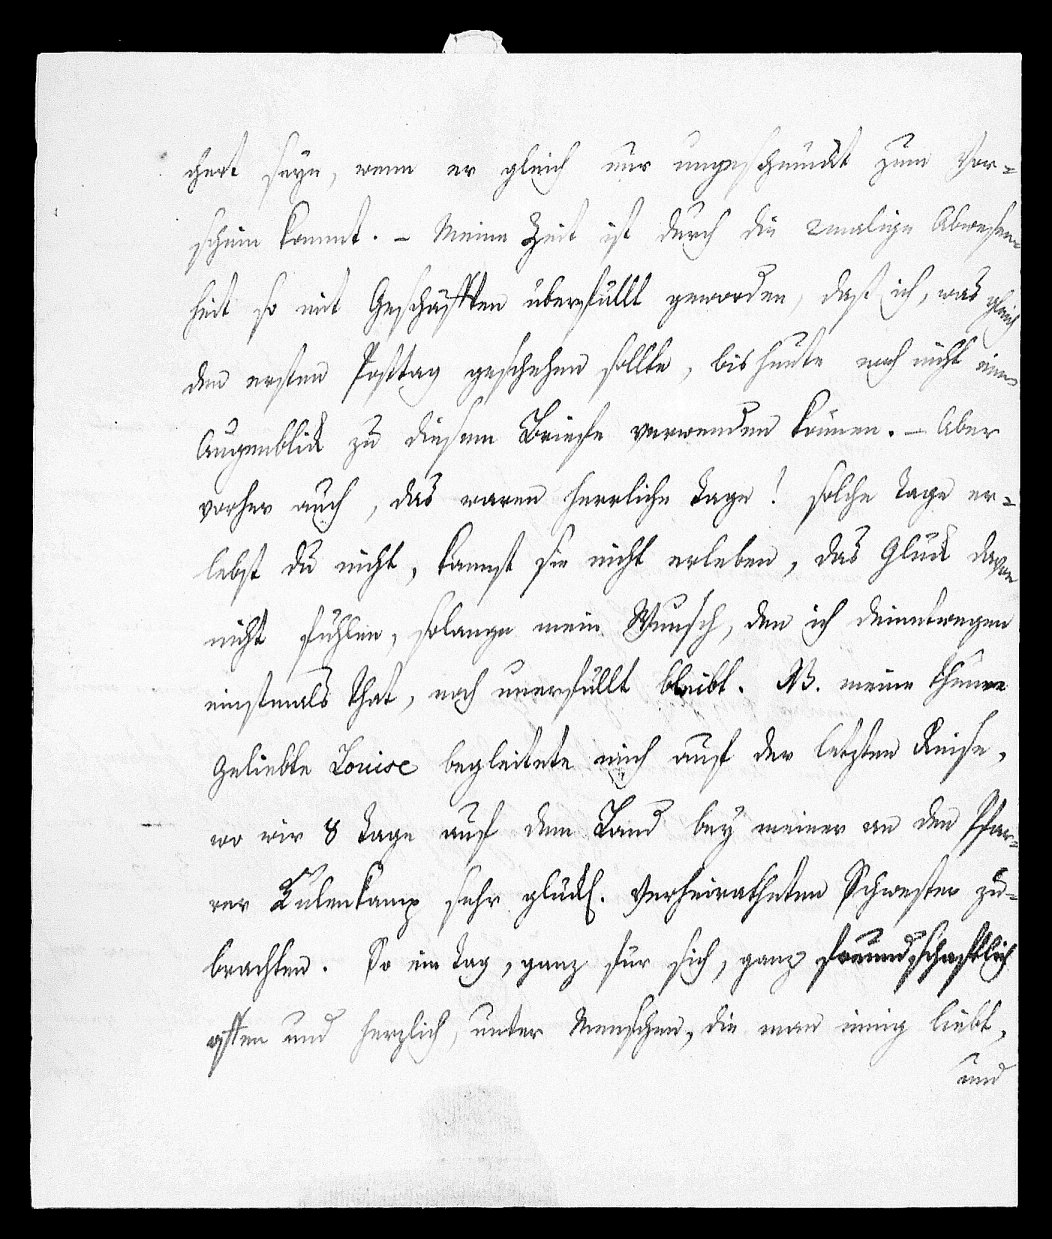 chert seyn, wenn er gleich nur ungeschmückt zum Vor-
schein kommt. – Meine Zeit ist durch die 2malige Abwesen-
heit so mit Geschäfften überfüllt geworden, daß ich, was gleich
den ersten Posttag geschehen sollte, bis heute noch nicht einen
Augenblick zu diesem Briefe verwenden können. – Aber
vorher auch, das waren herrliche Tage! solche Tage er-
lebst du nicht, kannst sie nicht erleben, das Glück davon
nicht fühlen, solange mein Wunsch, den ich deinetwegen
einstmals that, noch unerfüllt bleibt. NB. meine theure
Geliebte Louise begleitete mich auf der letzten Reise,
wo wir 8 Tage auf dem Land bey meiner an den Pfar-
rer Kulenkamp sehr glückl. verheiratheten Schwester zu-
brachten. So ein Tag, ganz für sich, ganz freundschaftlich
offen und herzlich, unter Menschen, die man innig liebt,
und